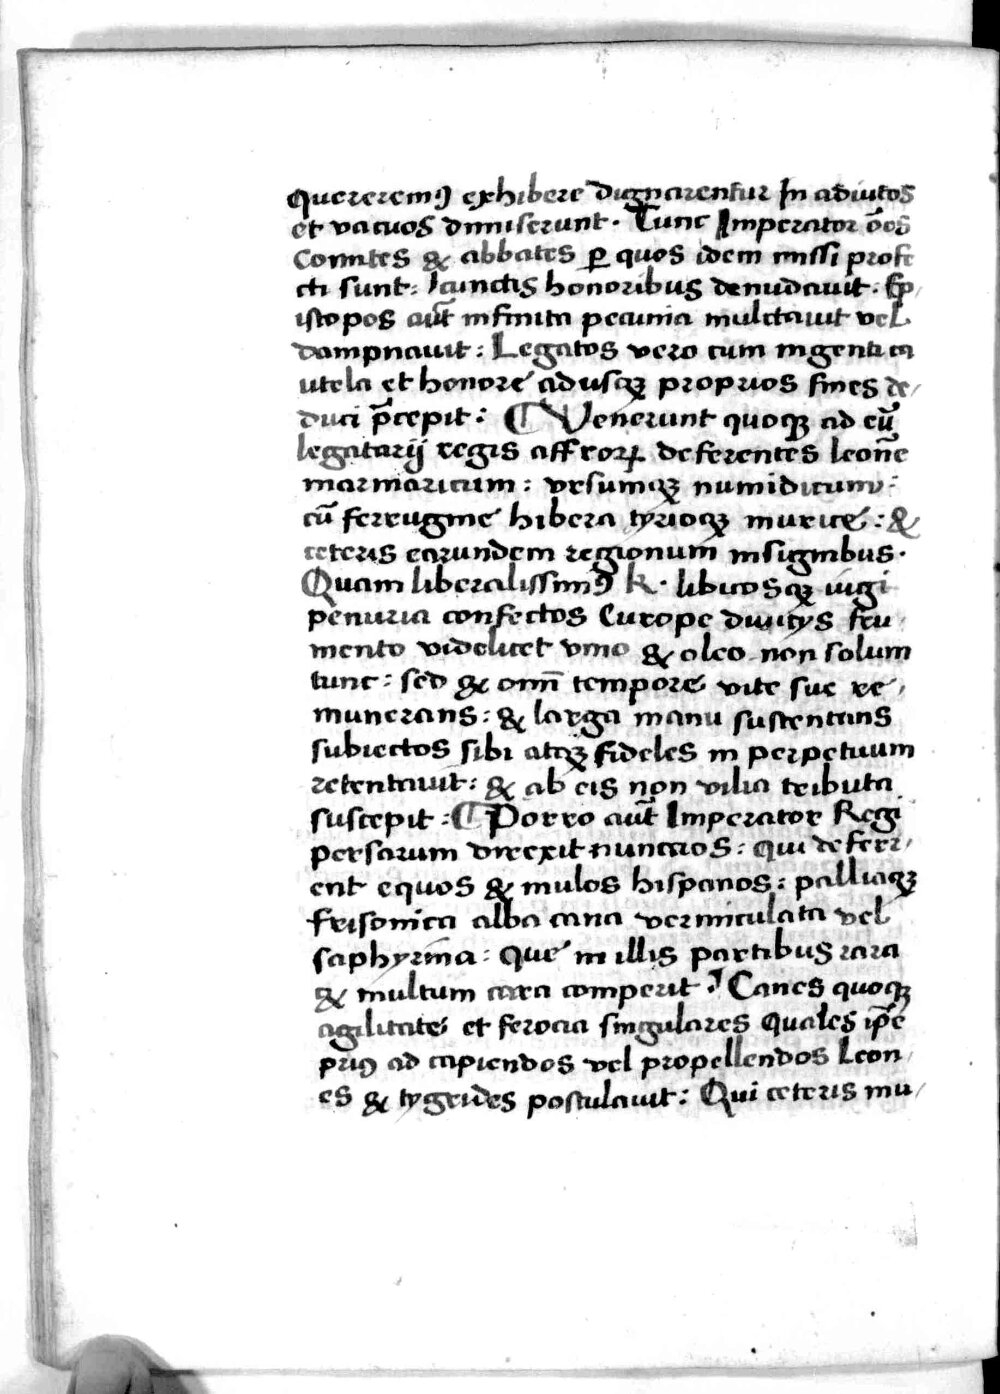 Quereremꝰ exhibere dignarentur In adiutos
et vacuos dimiserunt · Tunc Imperator o̅e̅s
Comites & abbates ꝑ quos idem missi profe
cti sunt : cunctis honoribus denudauit · Ep̅
iscopos aut̅ infinita pecunia mulctauit vel
dampnauit : Legatos vero cum ingenti ca
utela et honore adusqꝫ proprios fines de/
duci p̅cepit : ¶ Venerunt quoqꝫ ad eu̅
legatarij regis affroꝝ deferentes leone̅
marmaricum : vrsumqꝫ numidicum :
cu̅ ferrugine hibera tyrioqꝫ murice : &
ceteris earundem regionum insignibus ·
Quam liberalissimꝰ k · libicosqꝫ iugi
penuria confectos Europe diuitys fru/
mento videlicet vino & oleo non solum
tunc : sed & omni̅ tempore vite sue re/
munerans : & larga manu sustentans
subiectos sibi atqꝫ fideles in perpetuum
retentauit : & ab eis non vilia tributa
suscepit : ¶ Porro aut̅ Imperator Regi
persarum direxit nuncios : qui deferr/
ent equos & mulos hispanos : palliaqꝫ
frisonica alba cana vermiculata vel
saphyrina : que in illis partibus rara
& multum cara comperit · Canes quoqꝫ
agilitate et ferocia singulares quales ip̅e
priꝰ ad capiendos vel propellendos Leon
es & tygrides postulauit : Qui ceteris mu/